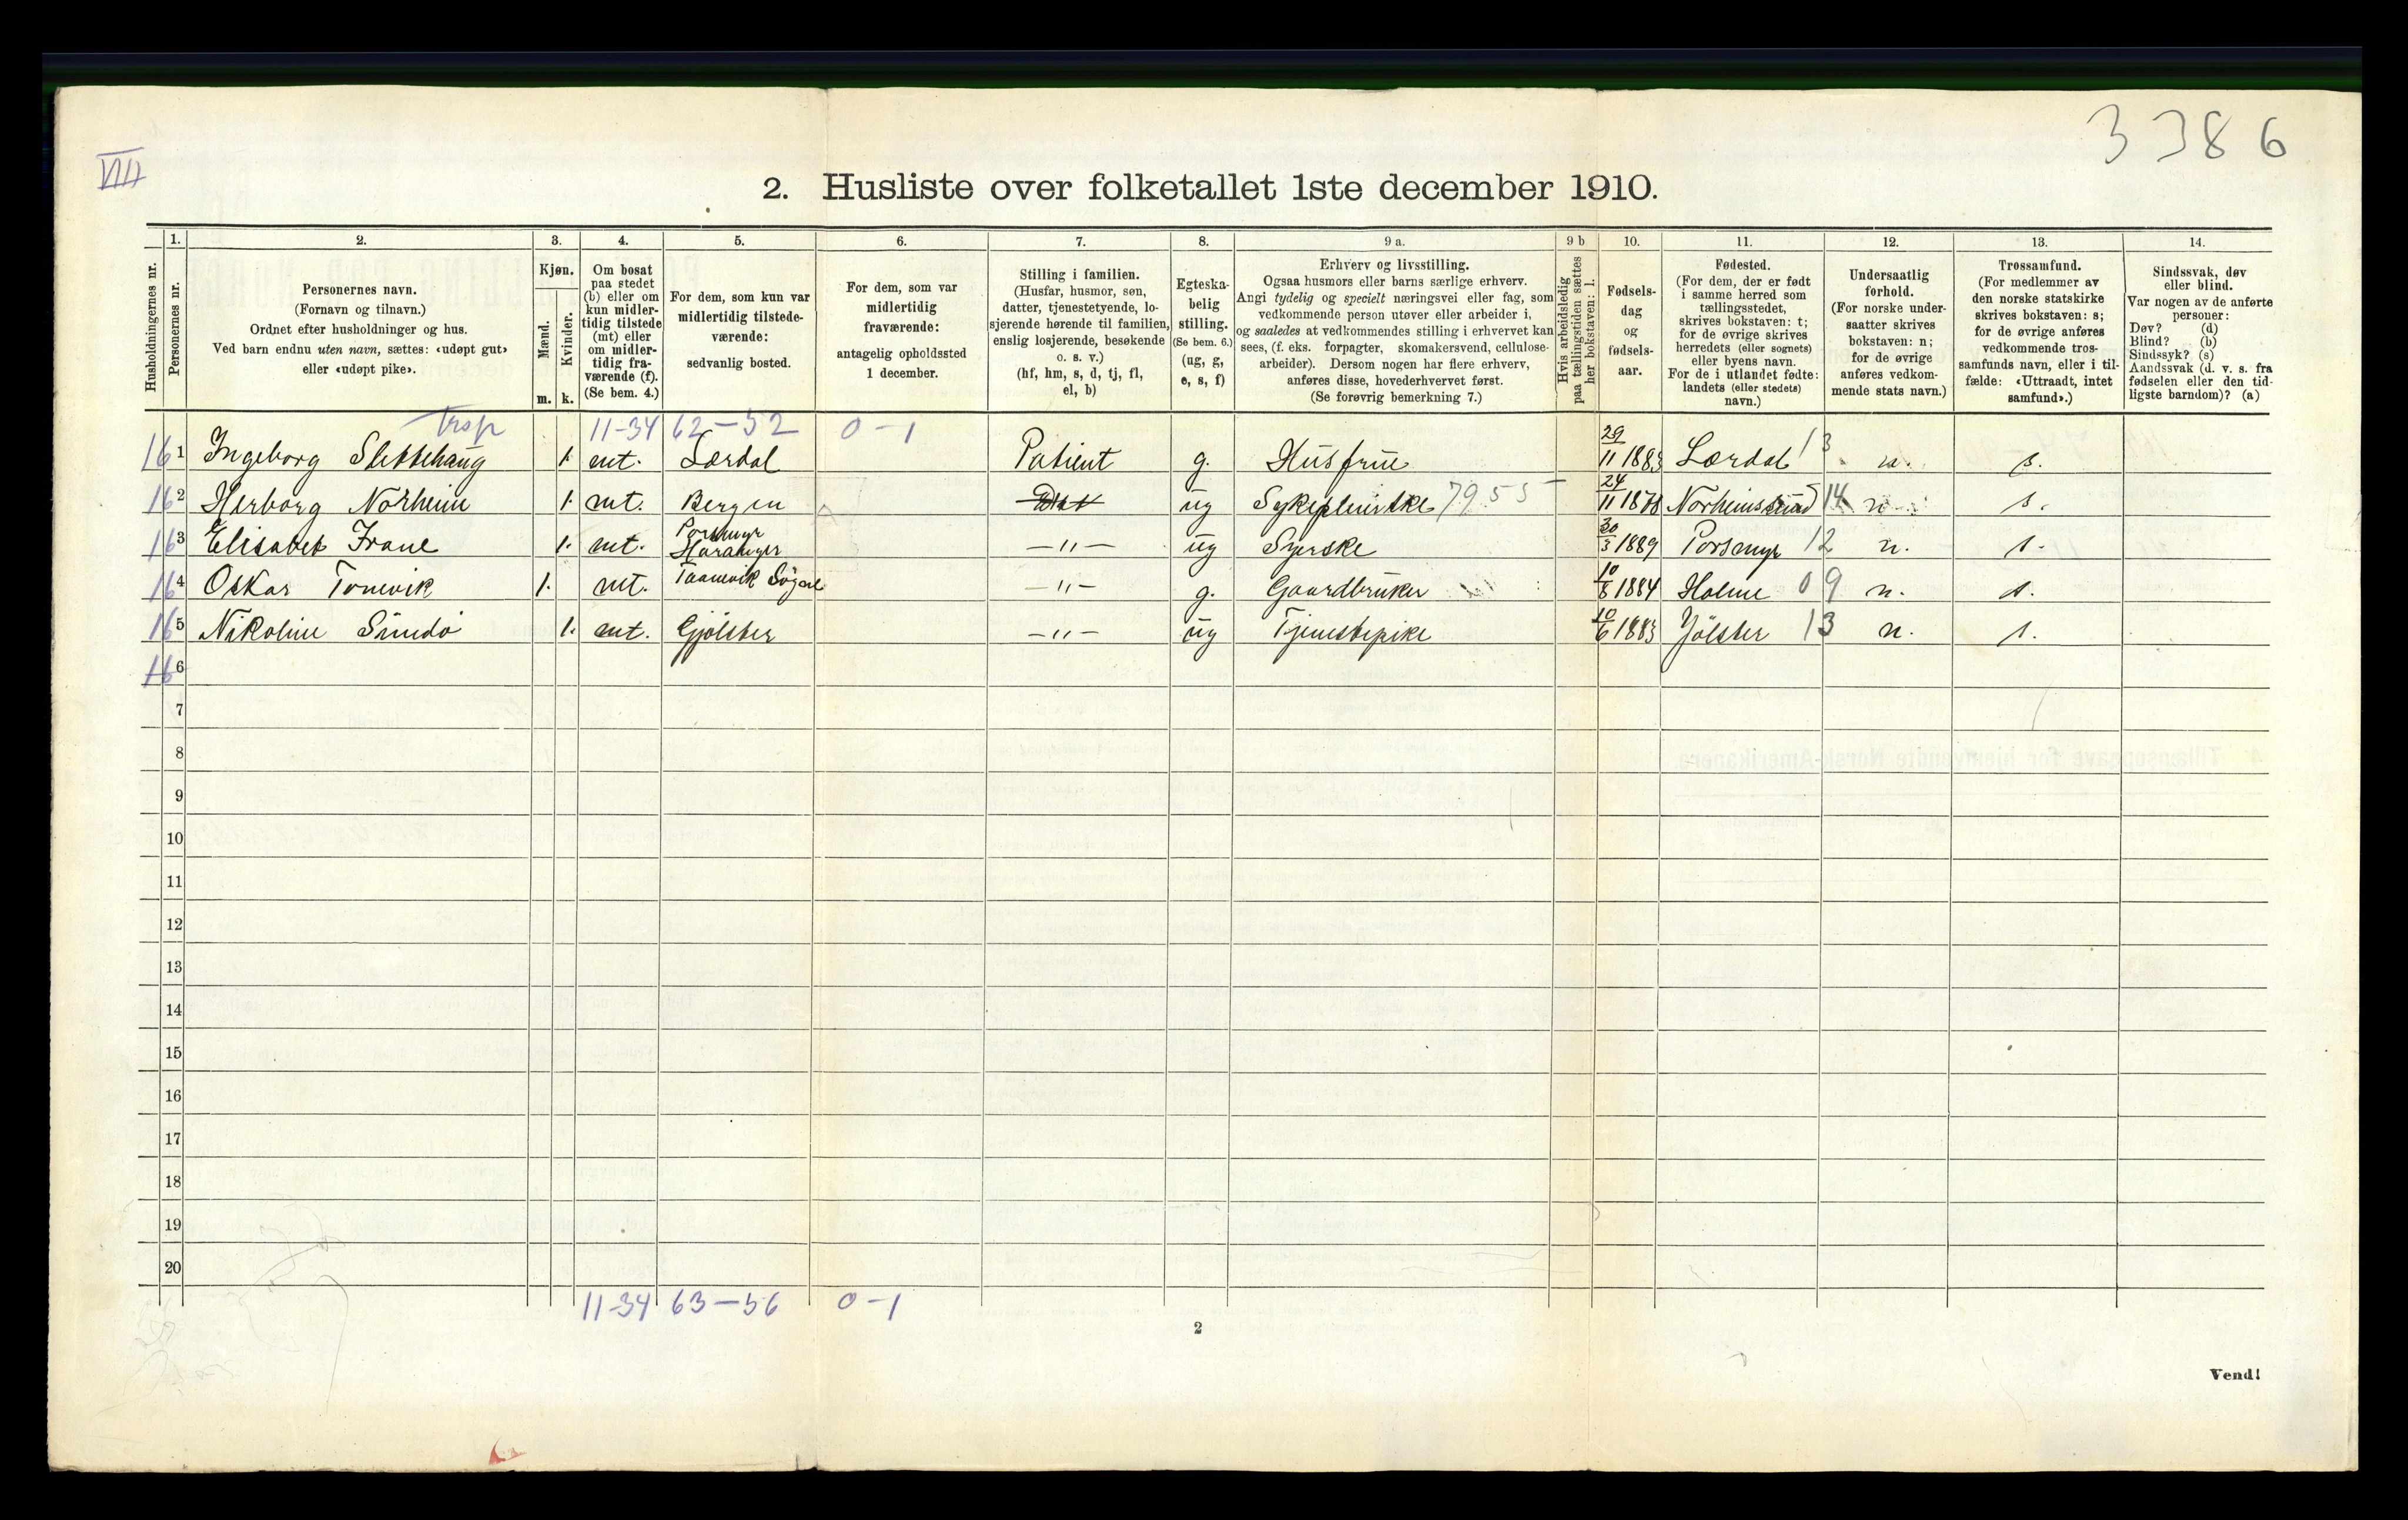 3386
VIII
2. Husliste over folketallet 1ste december 1910.
Husholdningernes nr.
1.
Personernes nr.
2.
Personernes navn.
(Fornavn og tilnavn.)
Ordnet efter husholdninger og hus.
Ved barn endnu uten navn, sættes: «udøpt gut»
eller «udøpt pike».
3.
Kjøn.
Mænd.
Kvinder.
m. k.
4.
Om bosat
paa stedet
(b) eller om
kun midler-
tidig tilstede
(mt) eller
om midler-
tidig fra-
værende (f).
(Se bem. 4.)
5.
For dem, som kun var
midlertidig tilstede-
værende:
sedvanlig bosted.
6.
For dem, som var
midlertidig
fraværende:
antagelig opholdssted
1 december.
7.
Stilling i familien.
(Husfar, husmor, søn,
datter, tjenestetyende, lo-
sjerende hørende til familien,
enslig losjerende, besøkende
o. s. v.)
(hf, hm, s, d, tj, fl,
el, b)
8.
Egteska-
belig
stilling.
(Se bem. 6.)
(ug, g,
e, s, f)
9 a.
Erhverv og livsstilling.
Ogsaa husmors eller barns særlige erhverv.
Angi tydelig og specielt næringsvei eller fag, som
vedkommende person utøver eller arbeider i,
og saaledes at vedkommendes stilling i erhvervet kan
sees, (f. eks. forpagter, skomakersvend, cellulose-
arbeider). Dersom nogen har flere erhverv,
anføres disse, hovederhvervet først.
(Se forøvrig bemerkning 7.)
9 b
Hvis arbeidsledig
paa tællingstiden sættes
her bokstaven: l.
10.
Fødsels-
dag
og
fødsels-
aar.
11.
Fødested.
(For dem, der er født
i samme herred som
tællingsstedet,
skrives bokstaven: t;
for de øvrige skrives
herredets (eller sognets)
eller byens navn.
For de i utlandet fødte:
landets (eller stedets)
navn.)
12.
Undersaatlig
forhold.
(For norske under-
saatter skrives
bokstaven: n;
for de øvrige
anføres vedkom-
mende stats navn.)
13.
Trossamfund.
(For medlemmer av
den norske statskirke
skrives bokstaven: s;
for de øvrige anføres
vedkommende tros-
samfunds navn, eller i til-
fælde: «Uttraadt, intet
samfund».)
14.
Sindssvak, døv
eller blind.
Var nogen av de anførte
personer:
Døv? (d)
Blind? (b)
Sindssyk? (s)
Aandssvak (d. v. s. fra
fødselen eller den tid-
ligste barndom)? (a)
11-34 62-52 0-1
16 1 Ingeborg Slettehaug 1. mt. Lærdal Patient g. Husfrue 29/11 1883 Lærdal 13 n. s.
16 2 Herborg Norheim 1. mt. Bergen ug Sykepleierske 7955 24/11 1878 Norheimsund 14 n. s.
16 3 Elisabet 1. mt. -"- ug Syerske 30/3 1889 12 n. s.
16 4 Oskar 1. mt. -"- g. Gaardbruker 10/8 1884 Holme 09 n. s.
16 5 Nikoline Sunde 1. mt. Gjölster -"- ug Tjenestepike 10/6 1883 Jölster 13 n. s.
16 6
7
8
9
10
11
12
13
14
15
16
17
18
19
20
11-34 63-56 0-1
2
Vend!